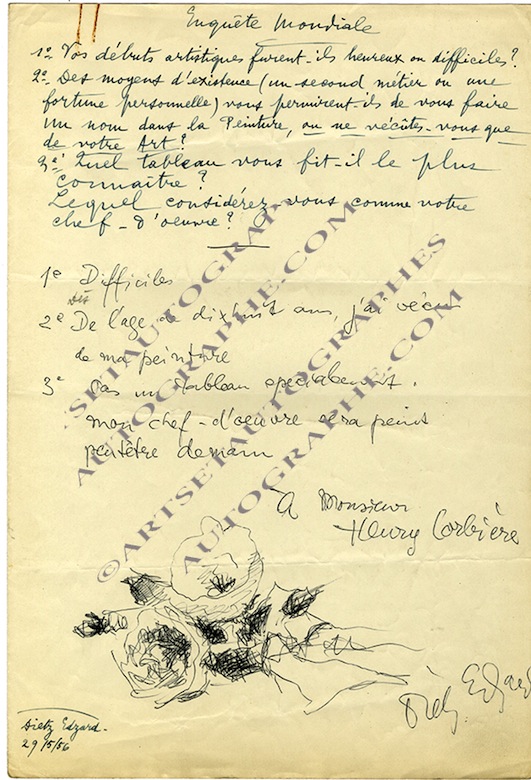 Enquête Mondiale
1º- Vos débuts artistiques furent-ils heureux ou difficiles?
2º- Des moyens d'existence (un second métier ou une
fortune personnelle) vous permirent-ils de vous faire
un nom dans la Peinture, ou ne vécûtes-vous que
de votre Art?
3e' Quel tableau vous fit-il le plus
Connaître?
Lequel considérez-vous comme votre
chef-d'oeuvre?
1e Difficiles
Dès
2e De l'age de dixhuit ans, j'ai vécu
de ma peinture
3e Pas un tableau specialement.
mon chef-d'oeuvre sera peint
peutêtre demain
A Monsieur
Henry Corbière
Dietz Edzard
Dietz Edzard-
29/5/56
ARTSETAUTOGRAPHES
AUTOGRAPHE.COM
©ARTSETAUTOGRAPHES
AUTOGRAPHE.COM